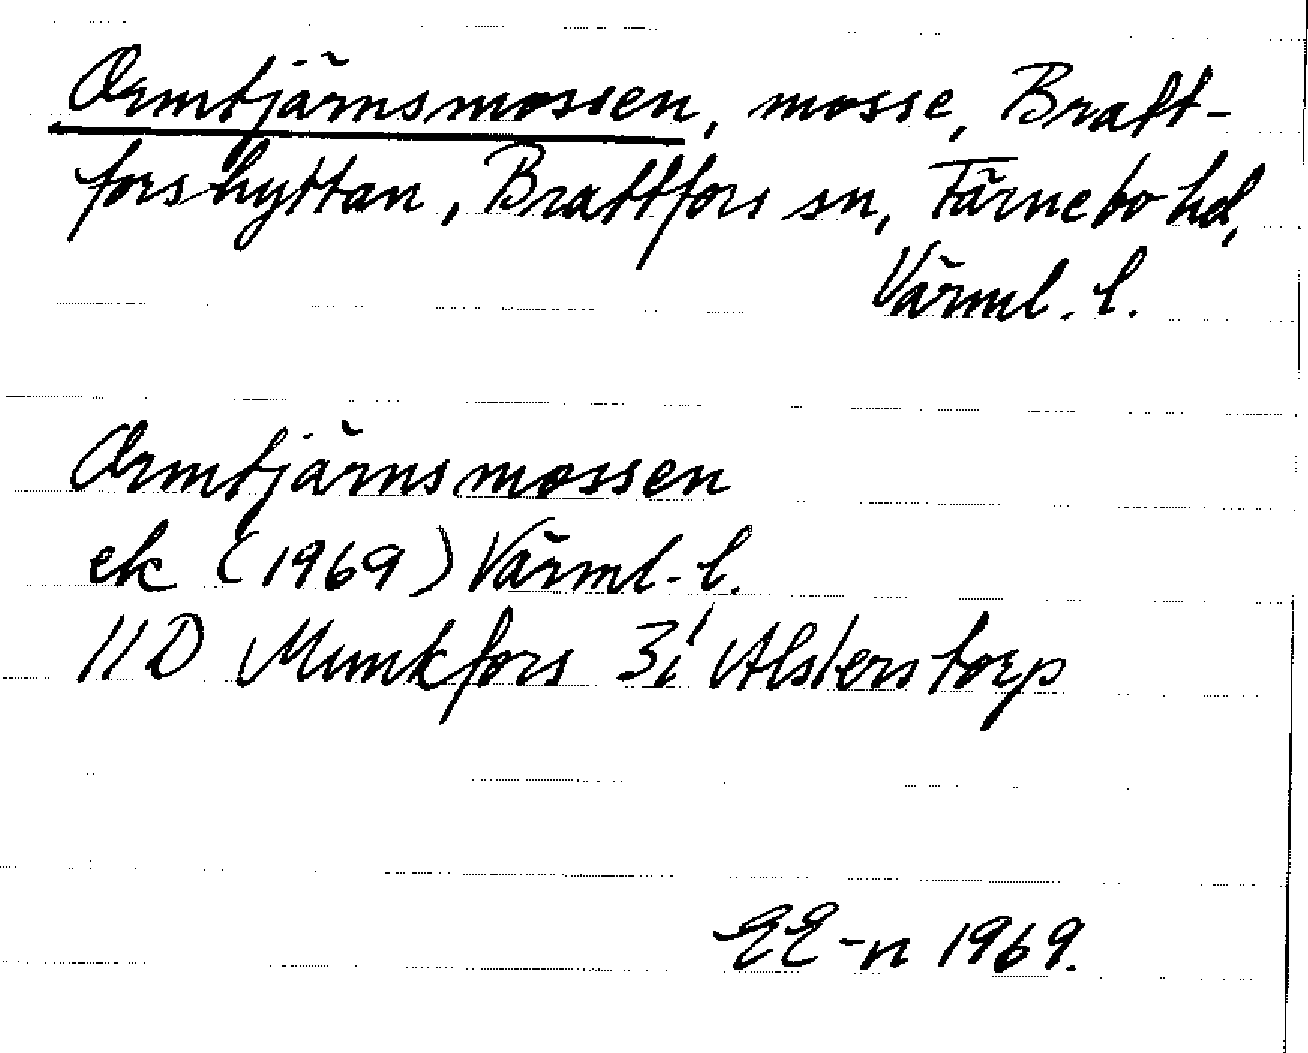 Ormtjärnsmossen, mosse, Bratt-
forshyttan, Brattfors sn, Färnebo hd,
Värml. l.
Ormtjärnsmossen
ek (1969) Värml. l.
11D Munkfors 3i Alsterstorp
EE-n 1969.